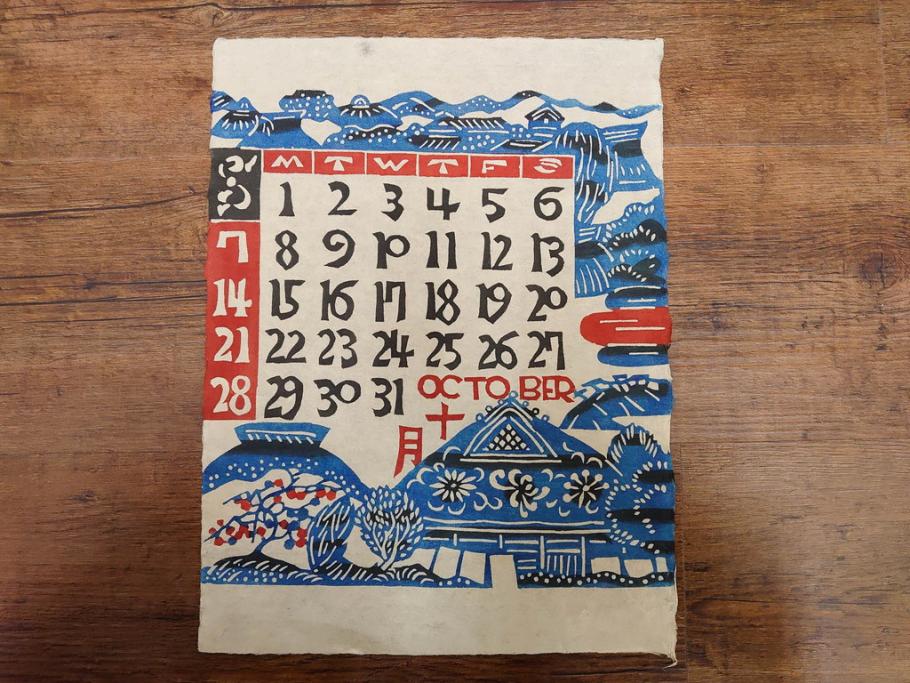 S M T W T F S
1 2 3 4 5 6
7 8 9 10 11 12 13
14 15 16 17 18 19 20
21 22 23 24 25 26 27
28 29 30 31 OCTOBER
十
月